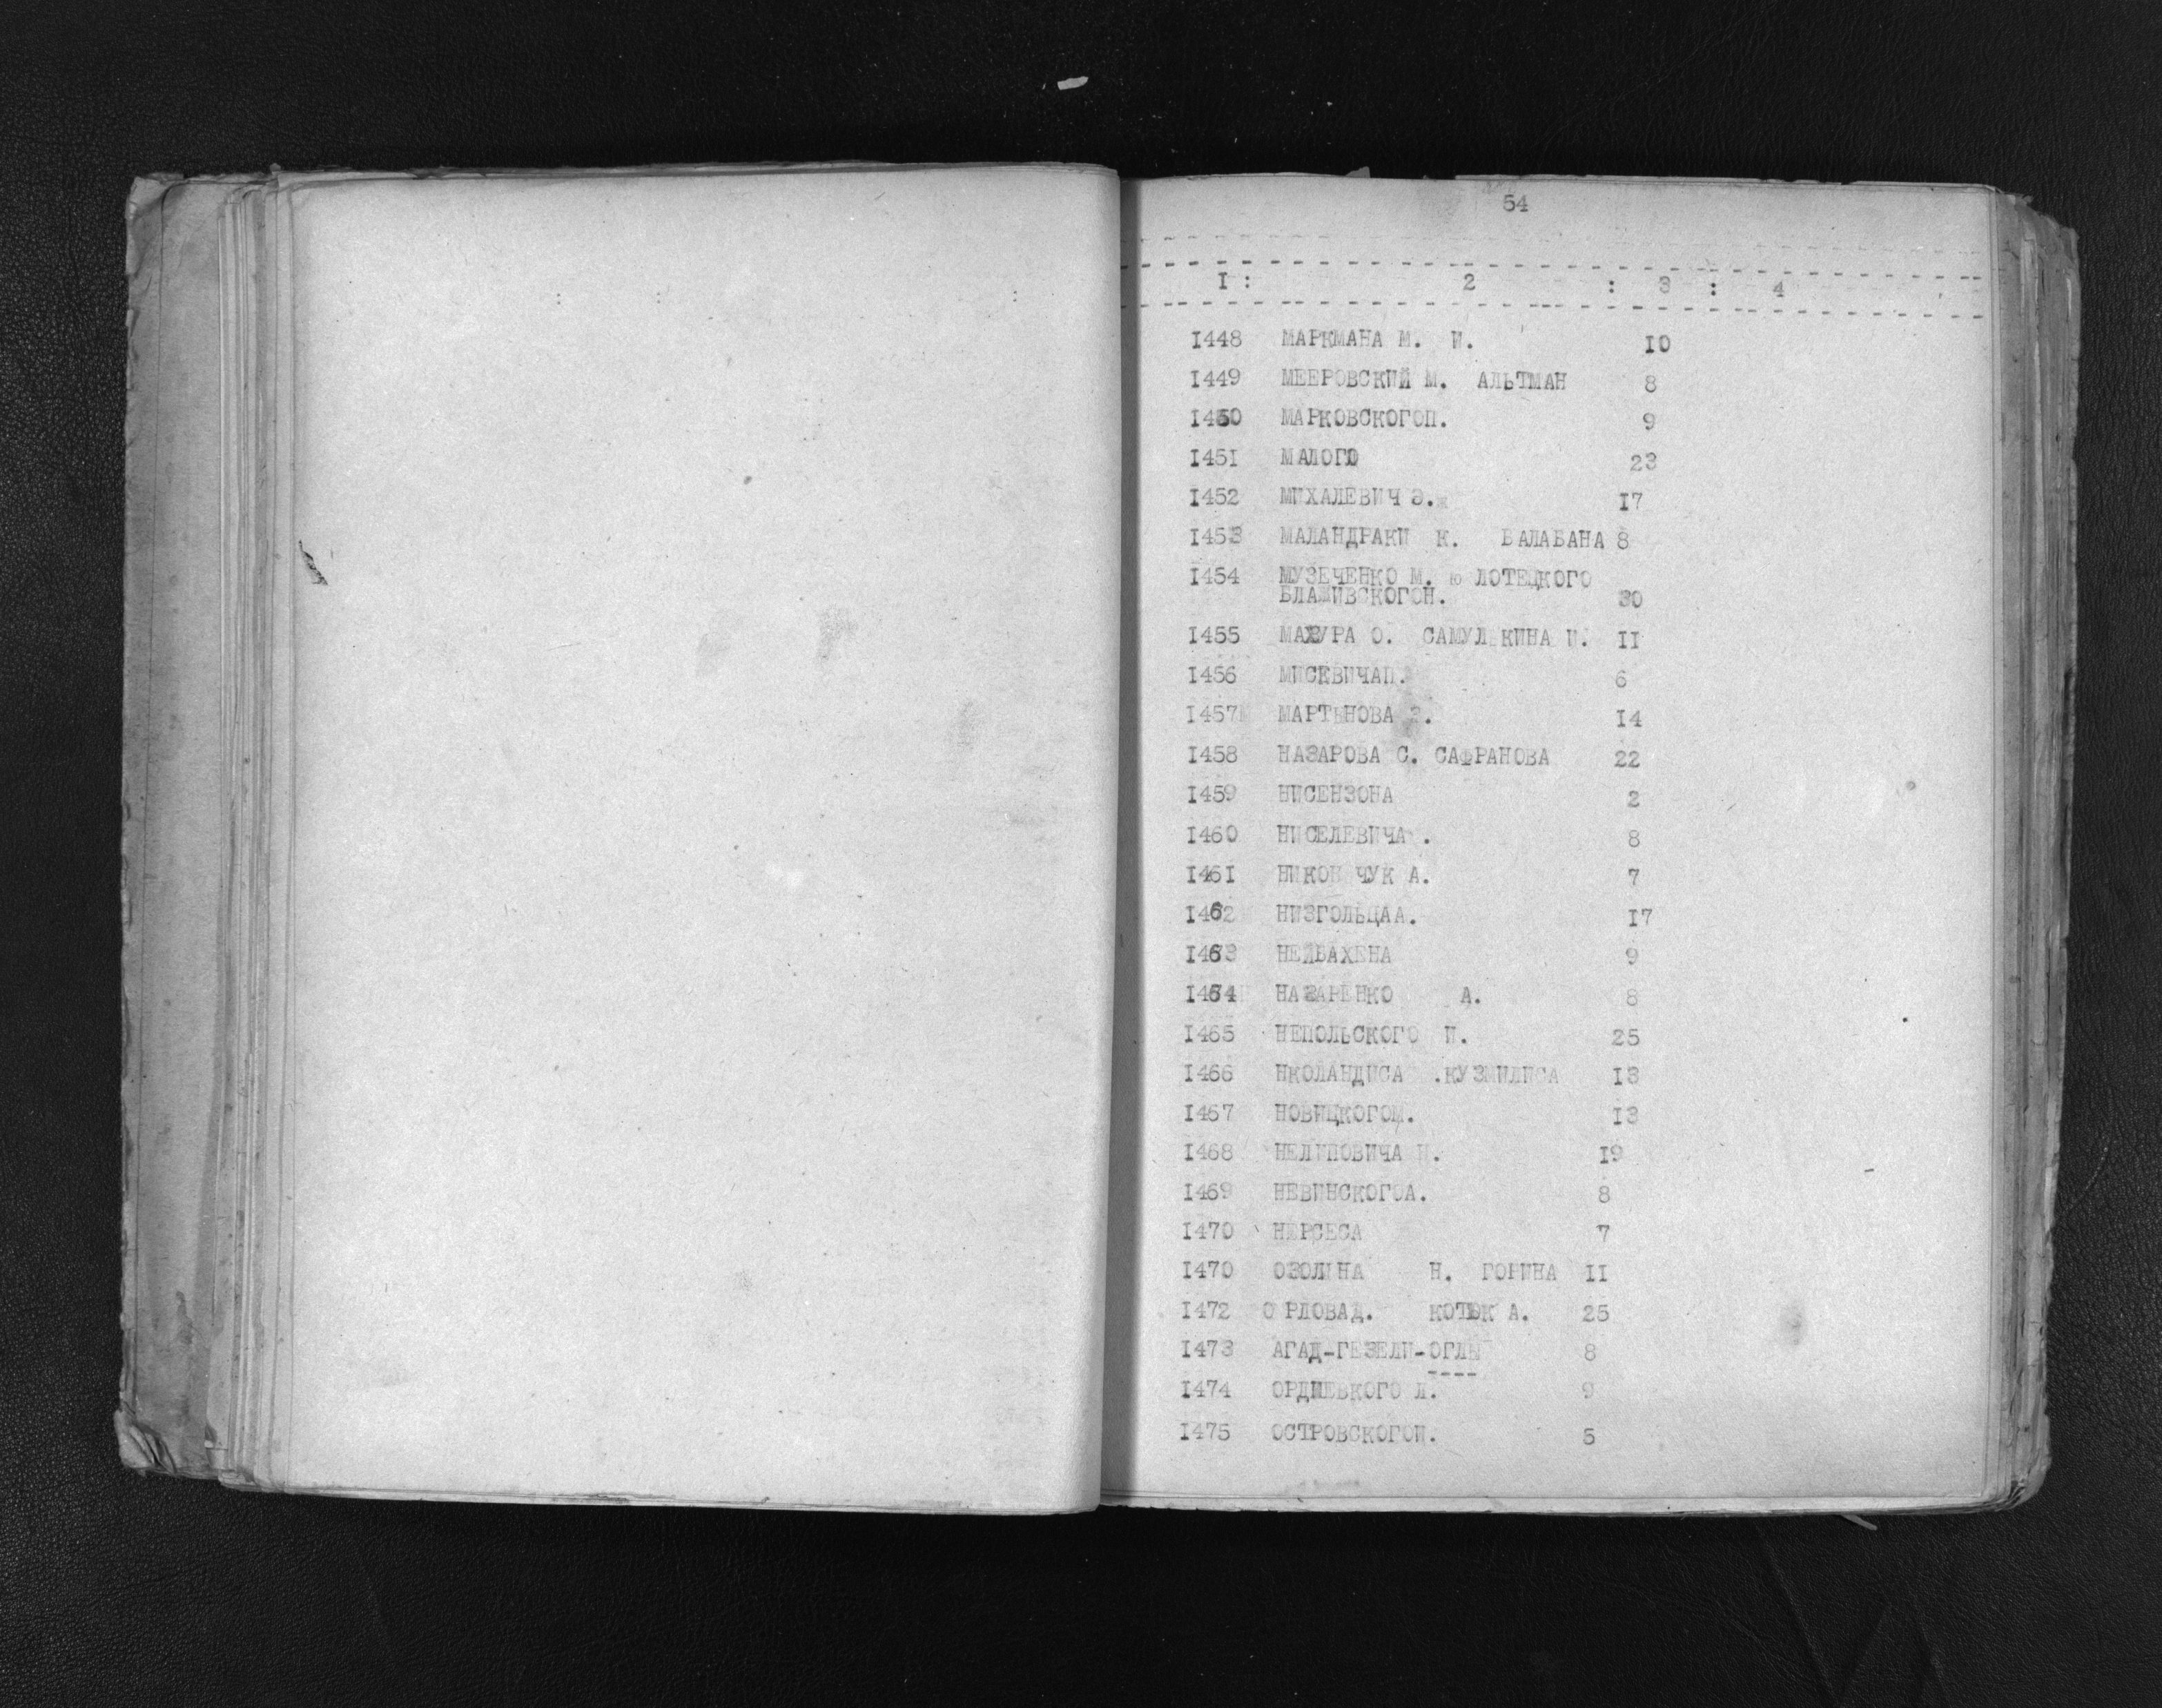 54
I : 2 : 3 : 4
I448 МАРКМАНА М. И. IO
I449 МЕЕРОВСКИЙ М. АЛЬТМАН 8
I450 МАРКОВСКОГОП. 9
I451 МАЛОГО 23
I452 МИХАЛЕВИЧ Э. I7
I453 МАЛАНДРАКИ К. БАЛАБАНА 8
I454 МУЗЕЧЕНКО М. ю ЛОТЕЦКОГО
БЛАШИВСКОГОН. 30
I455 МАЗУРА О. САМУЛЕКИНА И. II
I456 МИСЕВИЧАП. 6
I457 МАРТЫНОВА I4
I458 НАЗАРОВА С. САФРАНОВА 22
I459 НИСЕНЗОНА 2
I460 НИСЕЛЕВИЧА . 8
I46I НИКОН ЧУК А. 7
I462 НИЗГОЛЬЦАА. I7
I463 НЕЛБАХЕНА 9
I464 НАЗАРЕНКО А. 8
I465 НЕПОЛЬСКОГО П. 25
I466 НКОЛАНДИСА .КУЗМИЛИСА I3
I467 НОВИЦКОГОМ. I3
I468 НЕЛИПОВИЧА П. I9
I469 НЕВИНСКОГОА. 8
I470 НЕРСЕСА 7
I470 ОЗОЛИНА Н. ГОРИНА II
I472 О РЛОВАД. КОТЮК А. 25
I473 АГАД-ГЕЗЕЛИ-ОГЛЫ 8
I474 ОРДИЕВКОГО Л. 9
I475 ОСТРОВСКОГОИ. 5